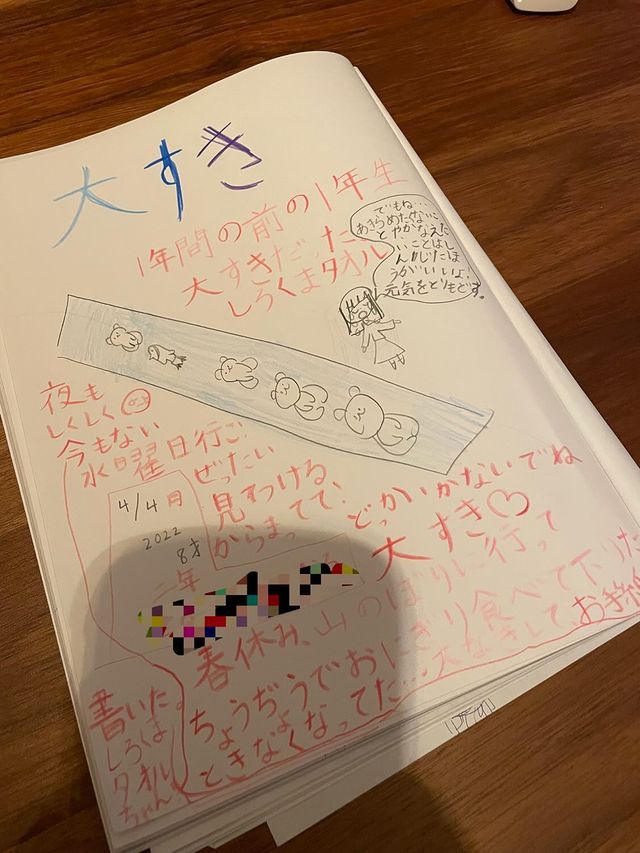 大すき
1年間の前の1年生
大すきだった
しろくまタオル
でもね…
あきらめたせないこ
とやかなえた
いことはし
んじたほ
うがいいよ!
元気をとりもどす。
夜も
しくしく
今もない
水曜日行ご
ぜったい
見すつける、
からまってて、
どっかいかないでね
大すき♡
4/4月
2022
8才
二年
春休み、山のぼりに行って
ちょうぢょうでおにぎり食べて下りた
ときなくなってた…大なきして、お
書いた。
しろくま
タオル
ちゃん